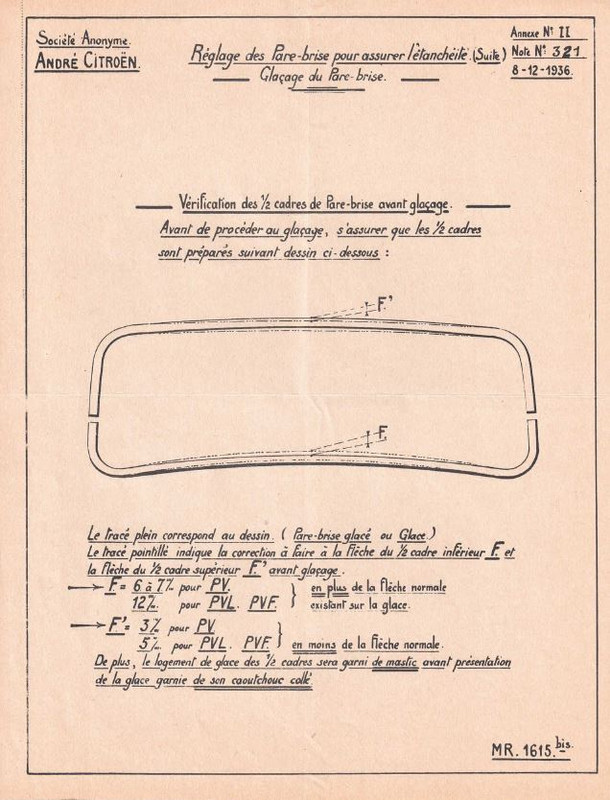 Société Anonyme.
ANDRÉ CITROËN.
Réglage des Pare-brise pour assurer l'étanchéité. (Suite)
Glaçage du Pare-brise.
Annexe N° II
Note N° 321
8-12-1936.
Vérification des ½ cadres de Pare-brise avant glaçage.
Avant de procéder au glaçage, s'assurer que les ½ cadres
sont préparés suivant dessin ci-dessous :
F'
F
Le tracé plein correspond au dessin. ( Pare-brise glacé ou Glace.)
Le tracé pointillé indique la correction à faire à la flèche du ½ cadre inférieur F. et
la flèche du ½ cadre supérieur F.' avant glaçage.
F = 6 à 7 m/m pour PV. } en plus de la flèche normale
12 m/m pour PVL. PVF. existant sur la glace.
F' = 3 m/m pour PV
5 m/m pour PVL. PVF. } en moins de la flèche normale.
De plus, le logement de glace des ½ cadres sera garni de mastic avant présentation
de la glace garnie de son caoutchouc collé
MR. 1615.bis.